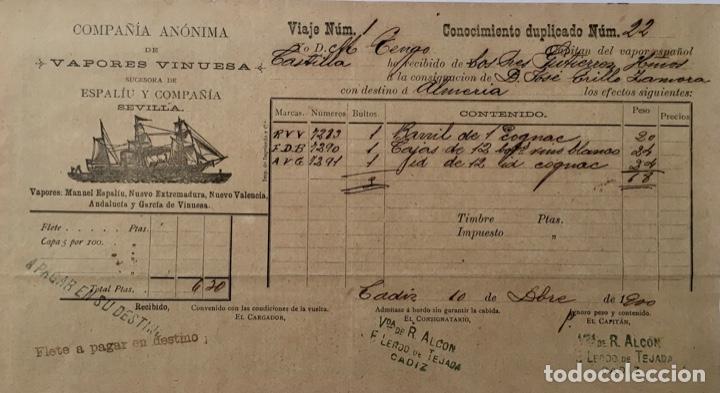 COMPAÑÍA ANÓNIMA
DE
VAPORES VINUESA
SUCESORA DE
ESPALÍU Y COMPAÑÍA
SEVILLA.
Vapores: Manuel Espalíu, Nuevo Extremadura, Nuevo Valencia,
Andalucía y García de Vinuesa.
Viaje Núm. 1 Conocimiento duplicado Núm. 22
Yo D. M Capitan del vapor español
Castilla he recibido de Los Tres Gutierrez Hnos
á la consignacion de D. José Zamora
con destino á Almería los efectos siguientes:
Marcas. Números Bultos. CONTENIDO. Peso Precios
R V V 1283 1 Barril de 1 Cognac 20
F. D. B 1290 1 Cajas de 12 vino blanco 24
A V G 1291 1 id de 12 id cognac 24
3 68
Timbre Ptas.
Impuesto "
Flete... Ptas.
Capa 5 por 100. "
Total Ptas. 6 20
A PAGAR EN SU DESTINO
Cadiz 10 de Dbre de 1900
Recibido,
Convenido con las condiciones de la vuelta.
EL CARGADOR,
Admítase á bordo sin garantir la cabida.
EL CONSIGNATARIO,
Ignoro peso y contenido.
EL CAPITÁN,
Flete a pagar en destino;
Vda DE R. ALCON
F LERDO DE TEJADA
CADIZ
Vda DE R. ALCON
F LERDO DE TEJADA
todocoleccion.net